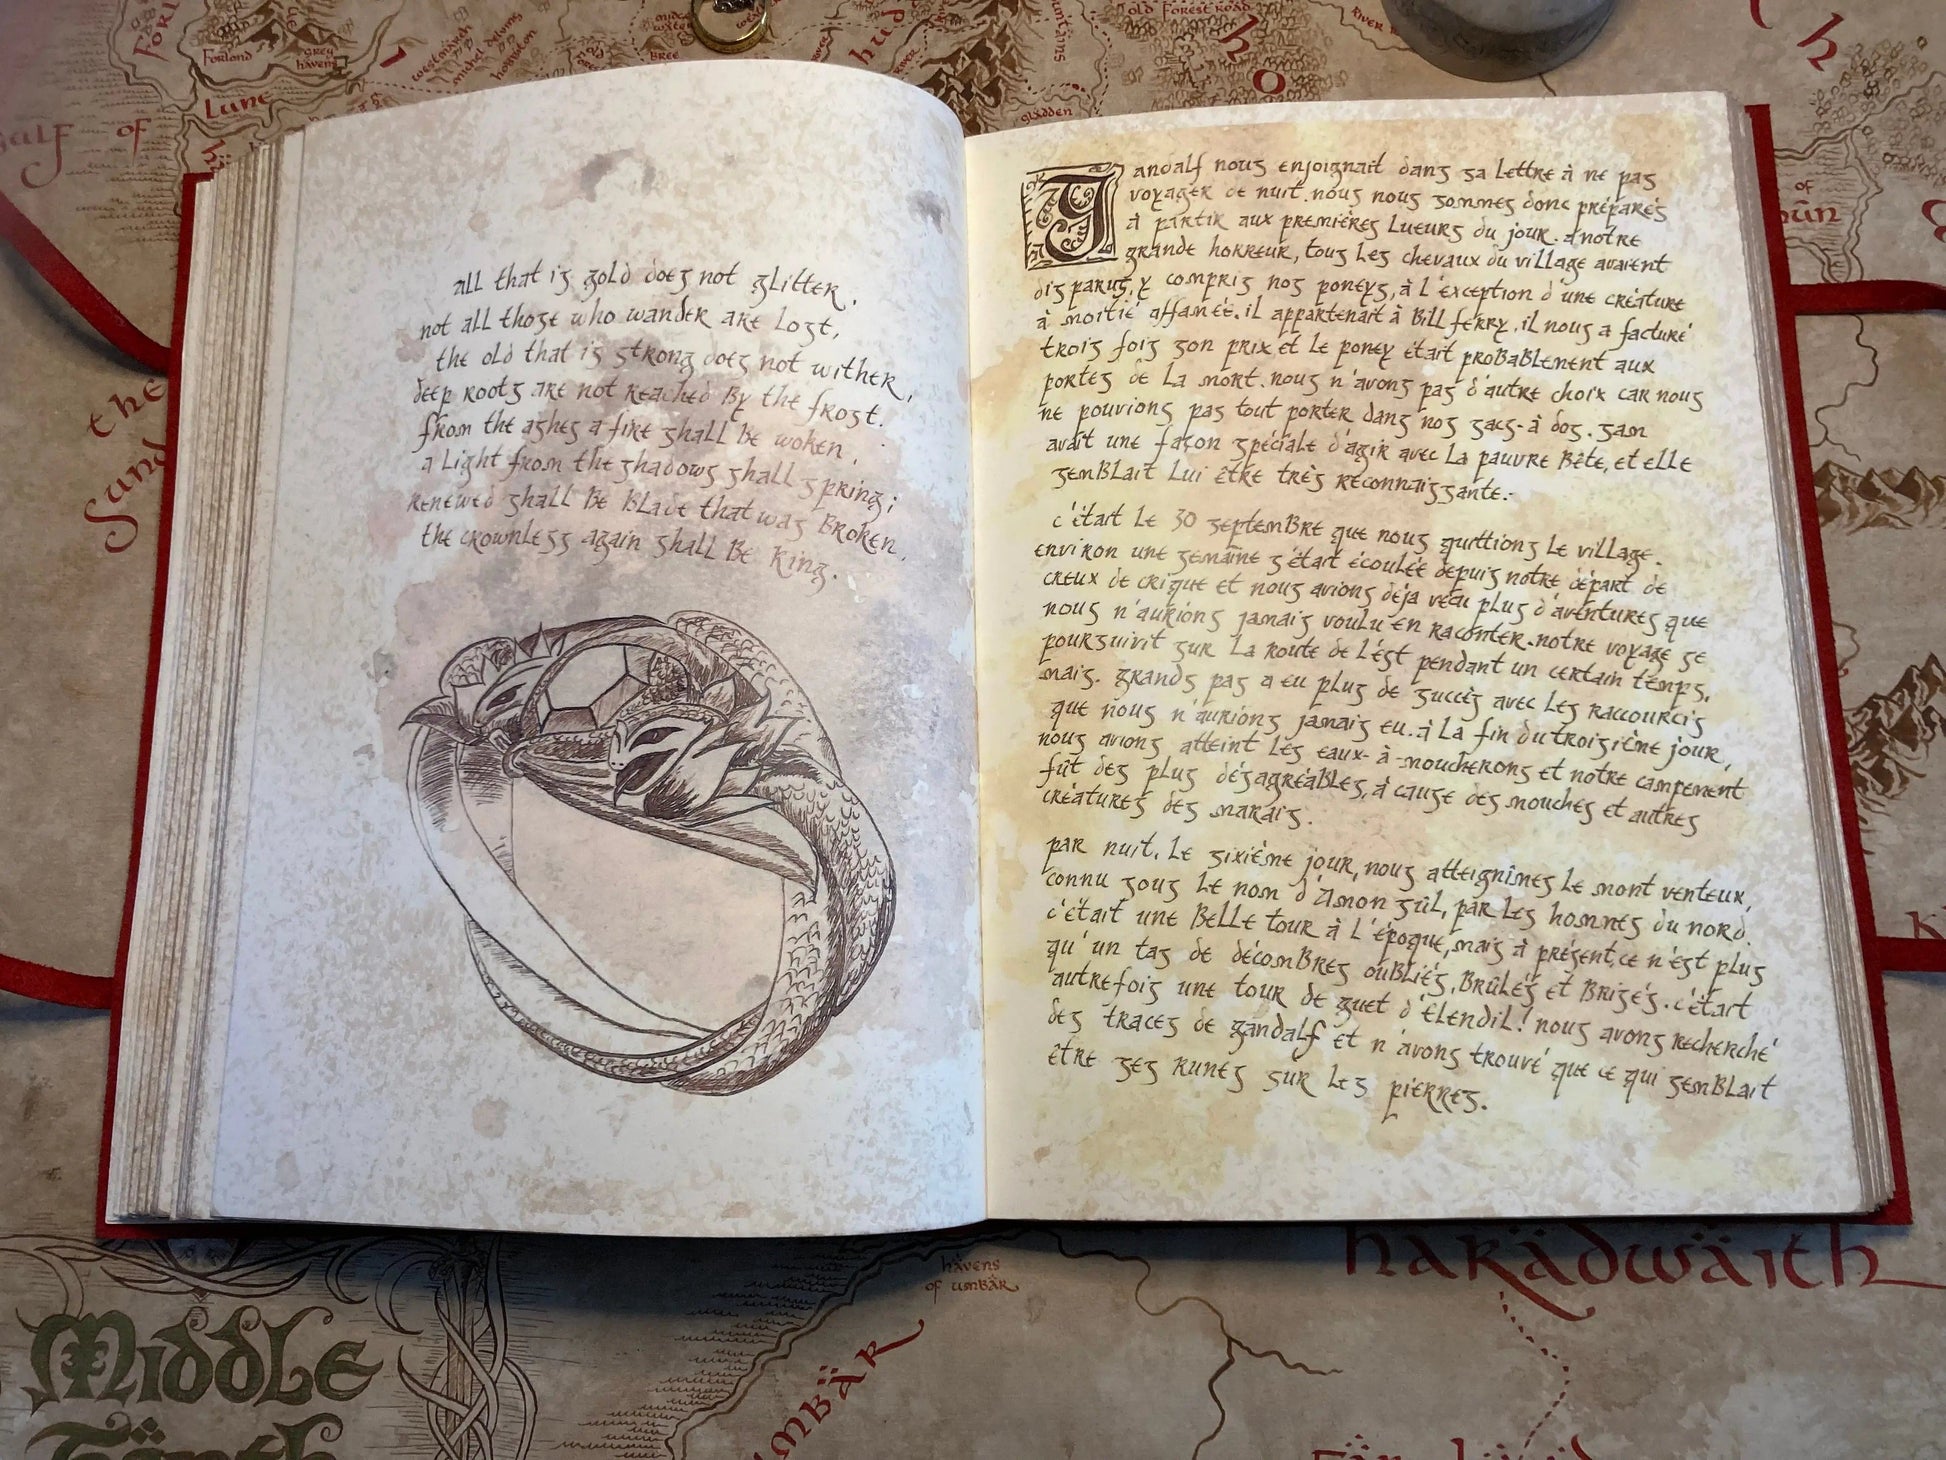 Forlond
Grey
havens
Lune
Gulf of
westmarch
michel delving
hobbiton
Bree
old Forest Road
River
gladden
the
Sund
all that is gold does not glitter,
not all those who wander are lost,
the old that is strong does not wither,
deep roots are not reached By the frost.
from the ashes a fire shall Be woken,
a Light from the shadows shall spring;
renewed shall Be Blade that was Broken,
the crownless again shall Be King.
Gandalf nous enjoignait dans sa Lettre à ne pas
voyager de nuit. nous nous sommes donc préparés
à partir aux premières Lueurs du jour. à notre
grande horreur, tous les chevaux du village avaient
disparus, y compris nos poneys, à L'exception d'une créature
à moitié affamée. il appartenait à Bill ferry, il nous a facturé
trois fois son prix, et Le poney était probablement aux
portes de La mort. nous n'avons pas d'autre choix car nous
ne pouvions pas tout porter dans nos sacs-à dos. sam
avait une façon spéciale d'agir avec La pauvre Bête, et elle
semblait Lui être très reconnaissante.
c'était Le 30 septembre que nous quittions Le village.
environ une semaine s'était écoulée depuis notre départ de
creux de crique et nous avions déja vécu plus d'aventures que
nous n'aurions jamais voulu en raconter. notre voyage se
poursuivit sur La route de L'est pendant un certain temps,
mais. grands pas a eu plus de succès avec Les raccourcis
que nous n'aurions jamais eu. à La fin du troisième jour,
nous avions atteint Les eaux-à-moucherons et notre campement
fût des plus désagréables, à cause des mouches et autres
créatures des marais.
par nuit. Le sixième jour, nous atteignîmes Le mont venteux,
connu sous Le nom d'Amon sûl, par Les hommes du nord.
c'était une Belle tour à L'époque, mais à présent, ce n'est plus
qu'un tas de décombres oubliés, Brûlés et Brisés. c'était
autrefois une tour de guet d'Élendil! nous avons recherché
des traces de gandalf et n'avons trouvé que ce qui semblait
être ses runes sur Les pierres.
havens
of umbär
harädwäith
Middle
Ëärth